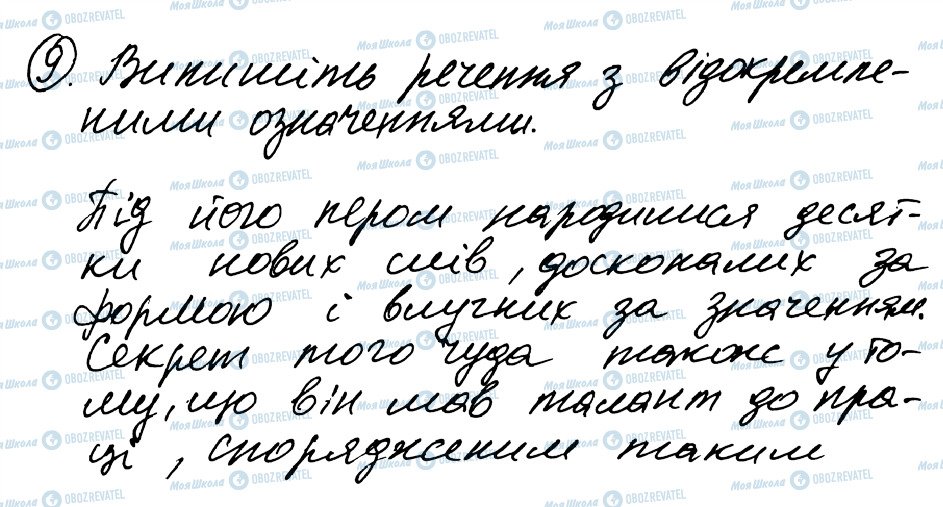 9. Випишіть речення з відокремле-
ними означеннями.
Під його пером народилися десят-
ки нових слів, досконалих за
формою і влучних за значенням.
Секрет того чуда також у то-
му, що він мав талант до пра-
ці, спорядженим таким